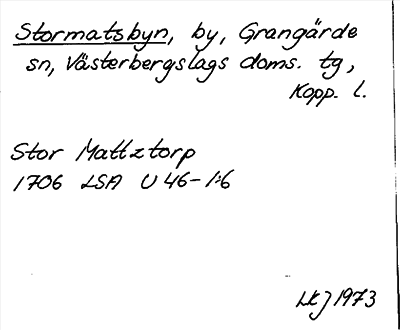 Stormatsbyn, by, Grangärde
sn, Västerbergslags doms. tg,
Kopp. l.
Stor Mattztorp
1706 LSA U 46-1:6
LKJ 1973